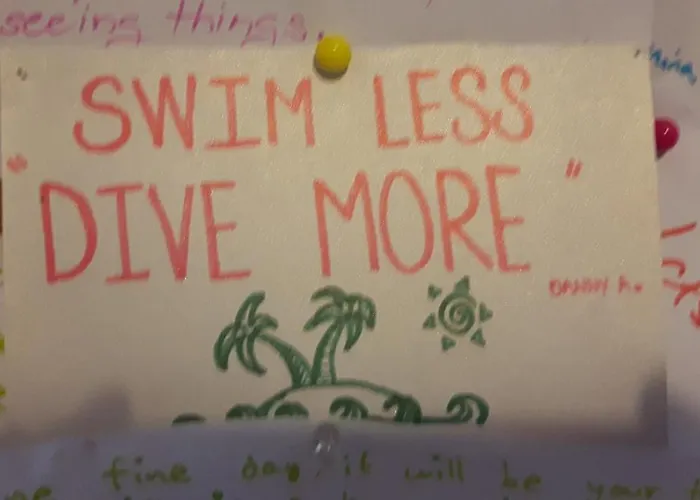 seeing things.
SWIM LESS
"DIVE MORE"
DANNY A.
fine day it will be your